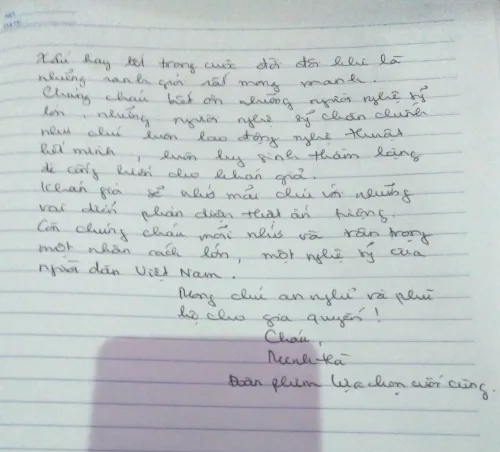 Xấu hay tốt trong cuộc đời đôi khi là
những ranh giới rất mong manh.
Chúng cháu biết ơn những người nghệ sỹ
lớn, những người nghệ sỹ chân chính
như chú luôn lao động nghệ thuật
hết mình, luôn hy sinh thầm lặng
để cống hiến cho khán giả.
Khán giả sẽ nhớ mãi chú với những
vai diễn phản diện thật ấn tượng.
Còn chúng cháu, mãi nhớ và trân trọng
một nhân cách lớn, một nghệ sỹ của
người dân Việt Nam.
Mong chú an nghỉ và phù
hộ cho gia quyến!
Cháu,
Đoàn phim lựa chọn cuối cùng.